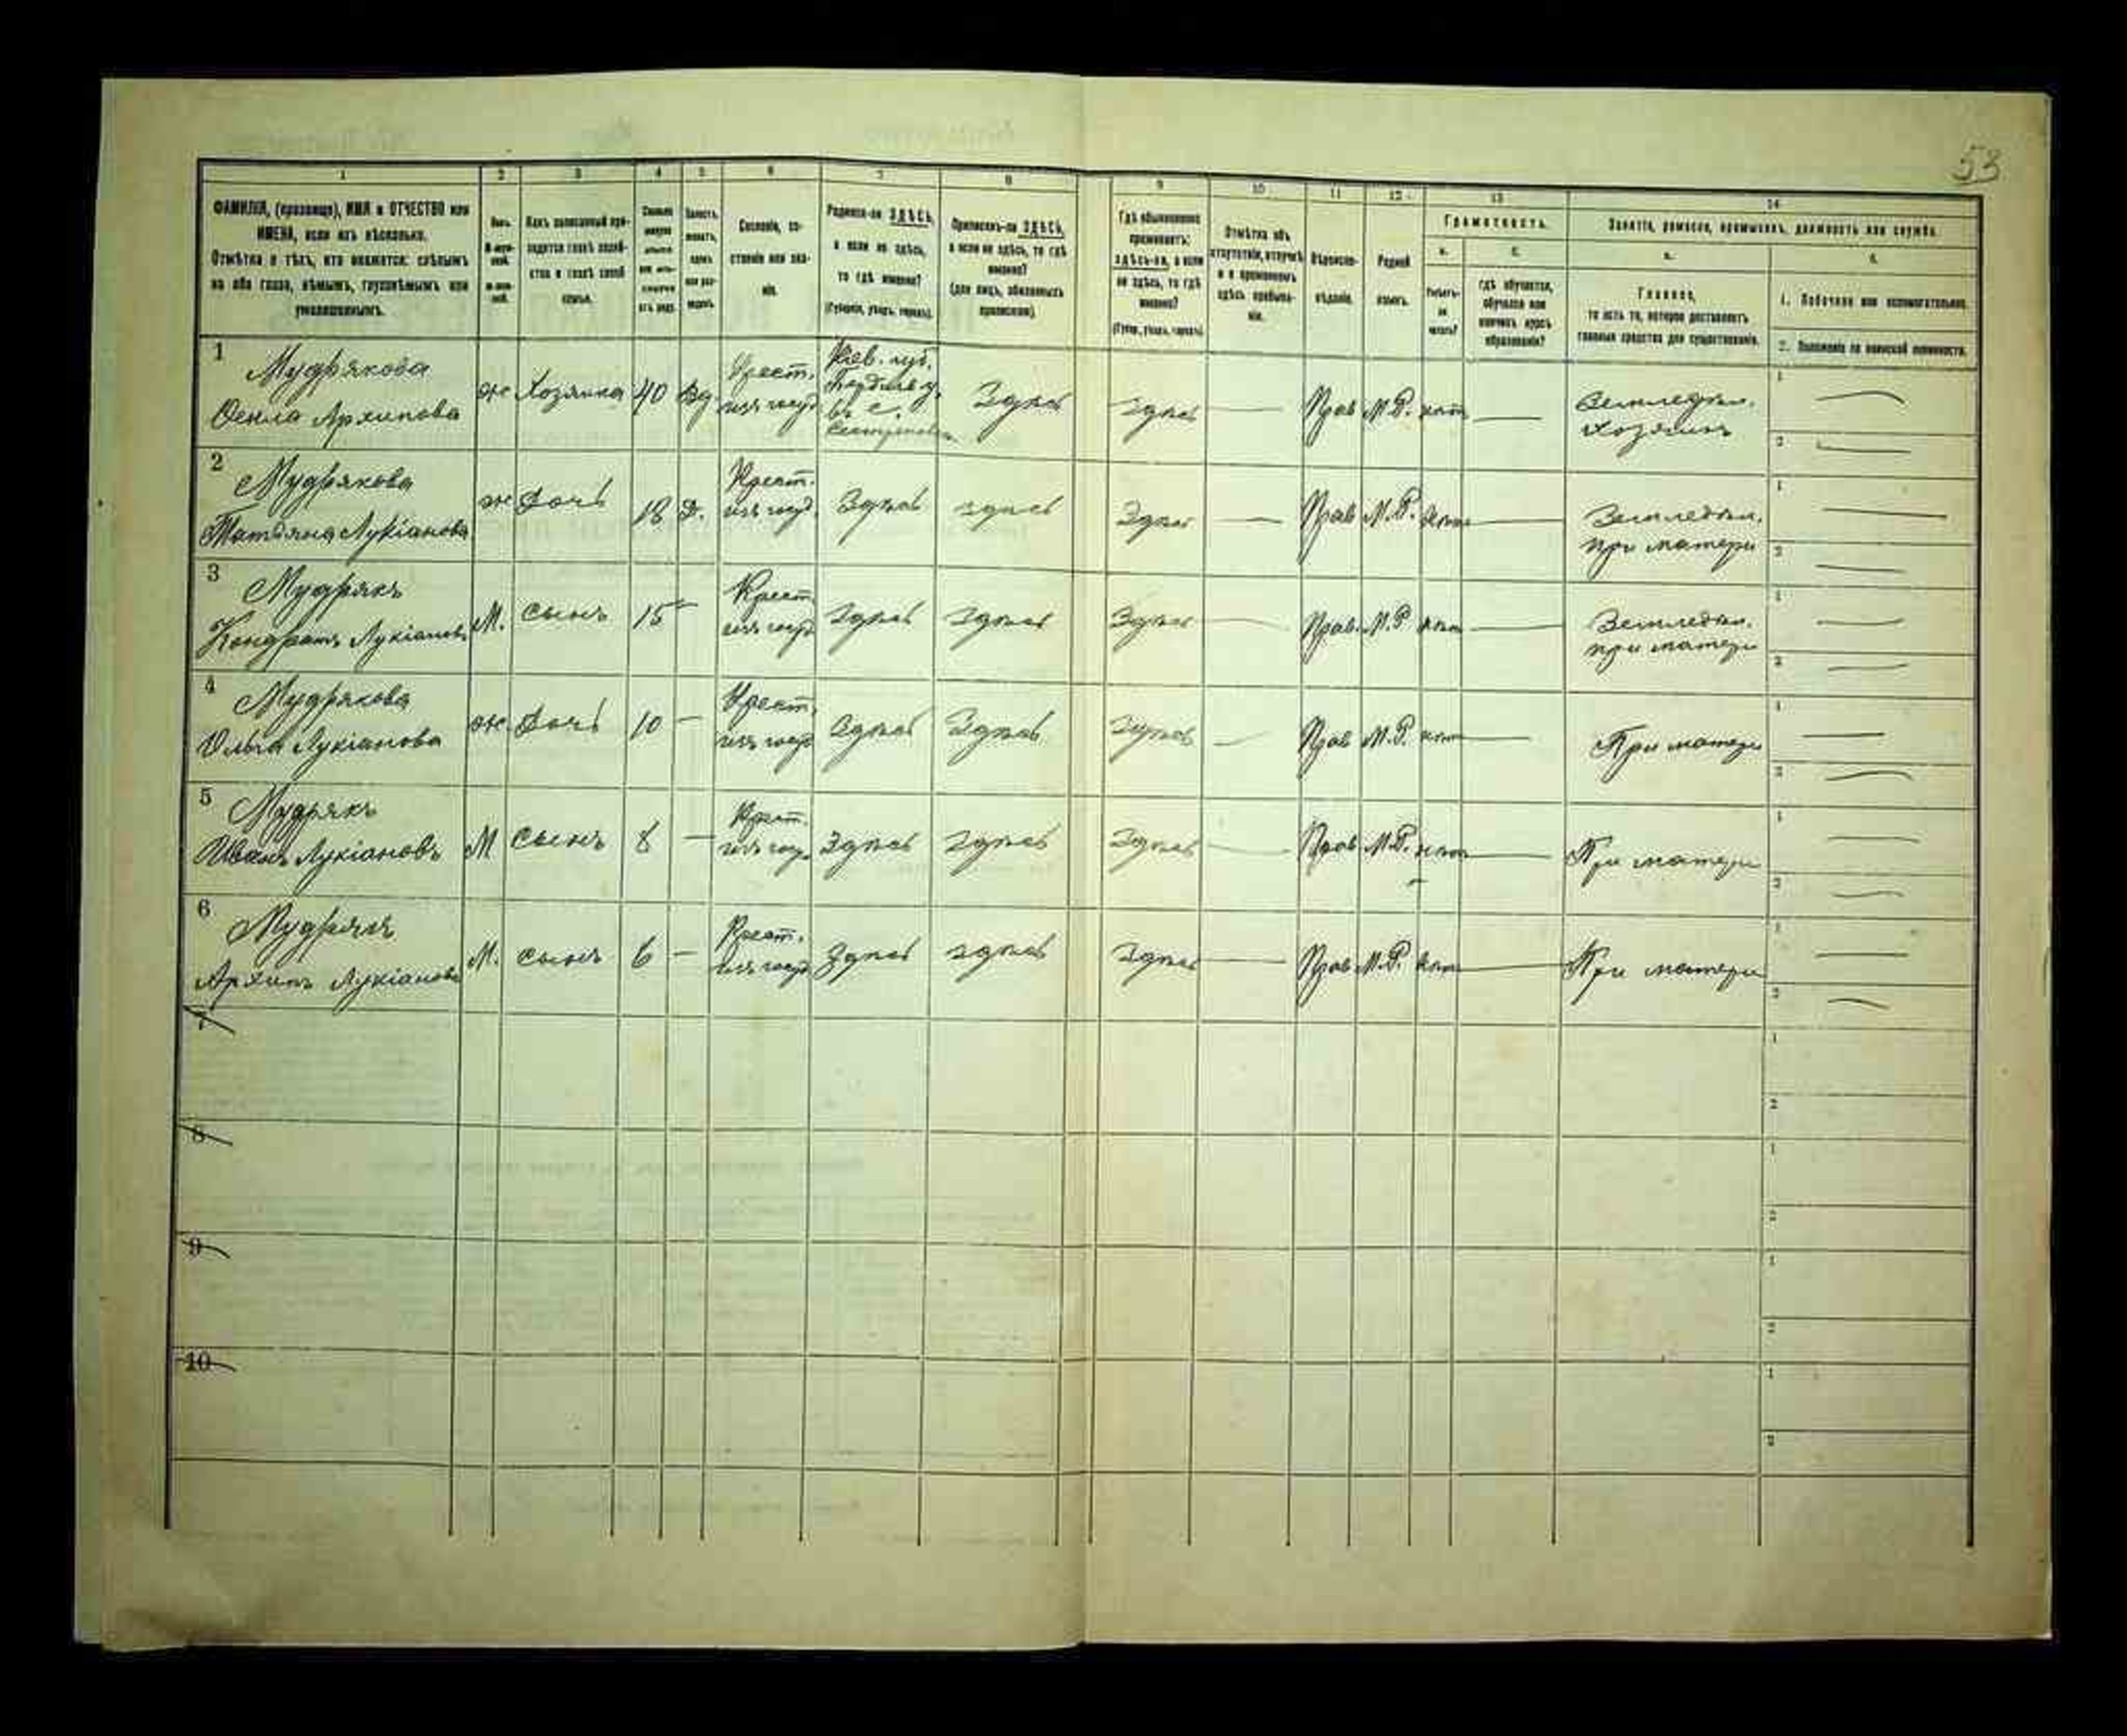 53
1 2 3 4 5 6 7 8 9 10 11 12 13 14
ФАМИЛІЯ, (прозвище), ИМЯ и ОТЧЕСТВО или
ИМЕНА, если ихъ нѣсколько.
Отмѣтка о тѣхъ, кто окажется: слѣпымъ
на оба глаза, нѣмымъ, глухонѣмымъ или
умалишеннымъ.
Полъ.
Какъ записанный при-
ходится главѣ хозяй-
ства и главѣ своей
семьи.
Холостъ,
женатъ,
вдовъ
или раз-
веденъ.
Сословіе, со-
стояніе или зва-
ніе.
Родился-ли ЗДѢСЬ,
а если не здѣсь,
то гдѣ именно?
(Губернія, уѣздъ, городъ).
Приписанъ-ли ЗДѢСЬ,
а если не здѣсь, то гдѣ
именно?
(для лицъ, обязанныхъ
припискою).
Гдѣ обыкновенно
проживаетъ:
здѣсь-ли, а если
не здѣсь, то гдѣ
именно?
(Губер., уѣздъ, городъ).
Отмѣтка объ
отсутствіи, отлучкѣ
и о временномъ
здѣсь пребыва-
ніи.
Вѣроиспо-
вѣданіе.
Родной
языкъ.
Грамотность.
а.
Умѣетъ-
ли
читать?
б.
гдѣ обучается,
обучался или
кончилъ курсъ
образованія?
Занятіе, ремесло, промыселъ, должность или служба.
а.
Главное,
то есть то, которое доставляетъ
главныя средства для существованія.
б.
1. Побочное или вспомогательное.
2. Положеніе по воинской повинности.
1 Мудрякова
Архипова
ж Хозяйка 40 вд.
Крест. изъ госуд.
Кіев. губ.
въ с.
Здѣсь Здѣсь — Прав М.Р. нѣтъ —
Земледѣл.
хозяинъ
1 —
2 —
2 Мудрякова
Татьяна Лукіанова
ж Дочь 18 Д.
Крест. изъ госуд.
Здѣсь здѣсь Здѣсь — Прав М.Р. нѣтъ —
Земледѣл.
при матери
1 —
2 —
3 Мудрякъ
Кондратъ Лукіановъ
М. сынъ 15 —
Крест. изъ госуд.
Здѣсь Здѣсь Здѣсь — Прав. М.Р нѣтъ —
Земледѣл.
при матери
1 —
2 —
4 Мудрякова
Ольга Лукіанова
ж. Дочь 10 —
Крест. изъ госуд
Здѣсь Здѣсь Здѣсь — Прав М.Р. нѣтъ —
При матери
1 —
2 —
5 Мудрякъ
Иванъ Лукіановъ
М сынъ 8 —
Крест. изъ госуд
Здѣсь Здѣсь Здѣсь — Прав М.Р. нѣтъ —
При матери
1 —
2 —
6 Мудрякъ
Архипъ Лукіановъ
М. сынъ 6 —
Крест. изъ госуд
Здѣсь здѣсь Здѣсь — Прав М.Р. нѣтъ —
При матери
1 —
2 —
7
1
2
8
1
2
9
1
2
10
1
2